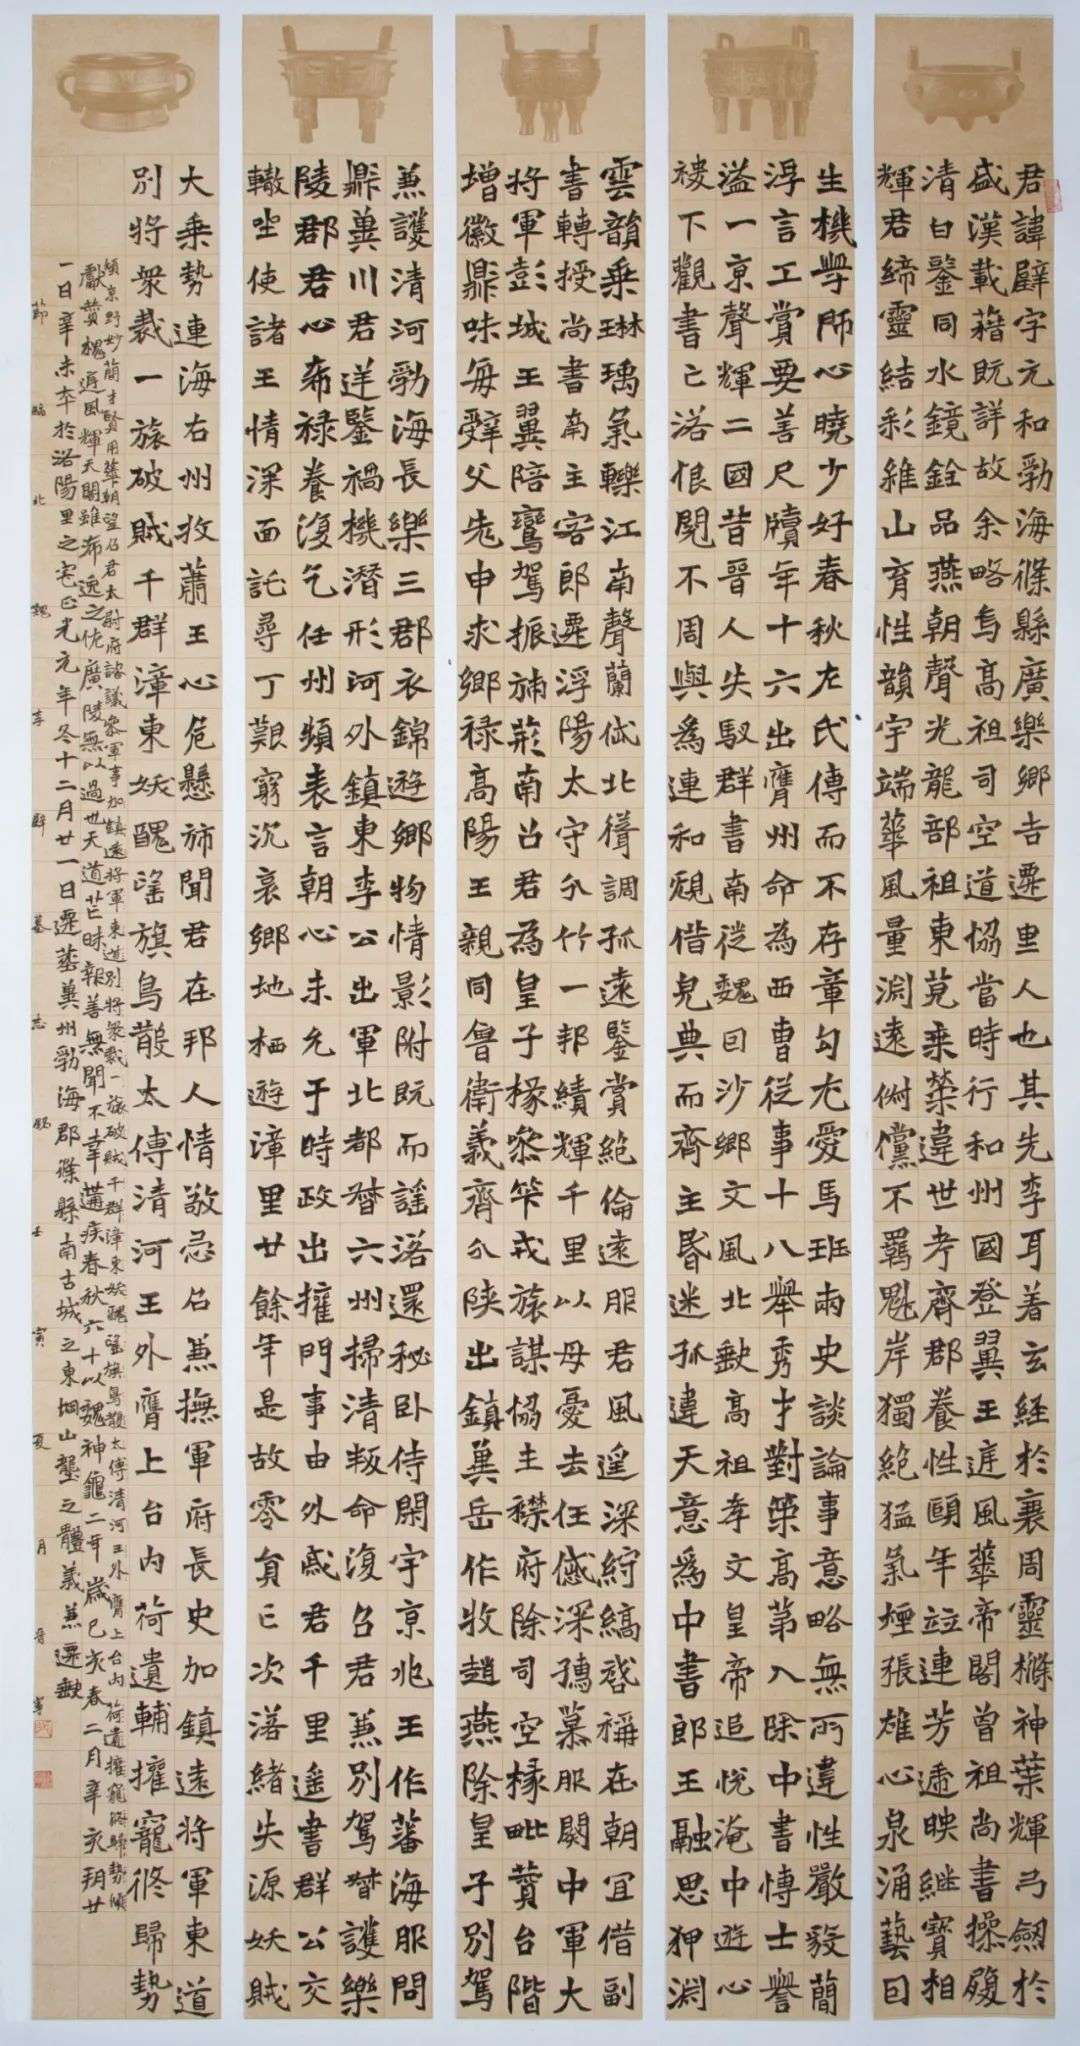 君諱璧字元和勃海條縣廣樂鄉吉遷里人也其先李耳著玄經於衰周靈櫬神葉輝弓劒於
盛漢載藉既詳故余略焉高祖司空道協當時行和州國登翼王庭風華帝閣曾祖尚書操履
清白鑒同水鏡銓品燕朝聲光龍部祖東莞乘榮違世考齊郡養性頤年竝連芳遞映繼寶相
輝君締靈結彩維山育性韻宇端華風量淵遠俶儻不羈魁岸獨絕猛氣煙張雄心泉涌藝因
生機學師心曉少好春秋左氏傳而不存章句尤愛馬班兩史談論事意略無所違性嚴毅簡
浮言工賞要善尺牘年十六出膺州命為西曹從事十八舉秀才對策高第入除中書博士譽
溢一京聲輝二國昔晉人失馭群書南徙魏因沙鄉文風北缺高祖孝文皇帝追悅淹中遊心
稷下觀書亡落恨閱不周與為連和規借完典而齊主昏迷孤違天意為中書郎王融思狎淵
雲韻乘琳瑀氣轢江南聲蘭岱北聳調孤遠鑒賞絕倫遠服君風遙深紵縞啓稱在朝宜借副
書轉授尚書南主客郎遷浮陽太守分竹一邦績輝千里以母憂去任慼深孺慕服闋中軍大
將軍彭城王翼陪鸞駕振旆荊南召君為皇子掾參筭戎旅謀協主襟府除司空掾毗贊台階
增徽鼎味每辭父老申求鄉祿高陽王親同魯衛義齊分陝出鎮冀岳作牧趙燕除皇子別駕
兼護清河勃海長樂三郡衣錦遊鄉物情影附既而謠落還秘臥侍閑宇京兆王作蕃海服問
鼎冀川君逆鑒禍機潛形河外鎮東李公出軍北都督六州掃清叛命復召君兼別駕督護樂
陵郡君心希祿養復乞任州頻表言朝心未允于時政出權門事由外戚君千里遙書群公交
轍坐使諸王情深面託尋丁艱窮沉哀鄉地栖遊漳里廿餘年是故零員亡次落緒失源妖賊
大乘勢連海右州牧蕭王心危懸旆聞君在邦人情敬忌召兼撫軍府長史加鎮遠將軍東道
別將眾裁一旅破賊千群漳東妖醜望旗鳥散太傅清河王外膺上台內荷遺輔權寵攸歸勢
傾京野妙簡才賢用華朝望乃君太尉府諮議參軍事加鎮遠將軍東道別將眾裁一旅破賊千群漳東妖醜望旗鳥散太傅清河王外膺上台內荷遺權寵攸歸勢傾
獻贊槐庭風輝天閣雖希逸之佐廣陵無以過也天道芒昧報善無聞不幸遘疾春秋六十以魏神龜二年歲己亥春二月辛亥朔廿
一日辛未卒於洛陽里之宅正光元年冬十二月廿一日遷葬冀州勃海郡條縣南古城之東堋山鑿之體義兼遷缺
節臨北魏李璧墓志壬寅夏月晉寧